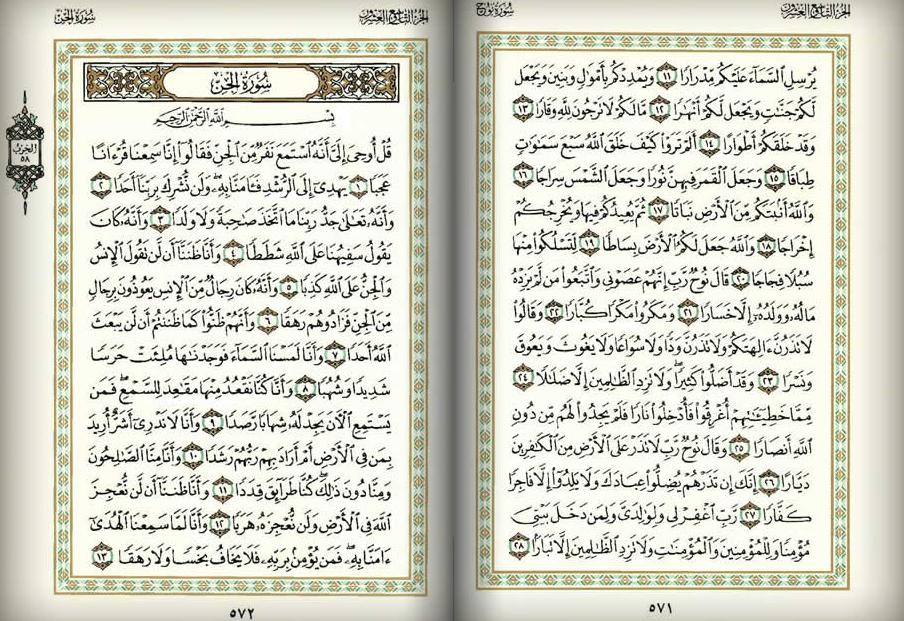 الجزء التاسع والعشرون
سورة نوح
يُرْسِلِ ٱلسَّمَآءَ عَلَيْكُم مِّدْرَارًا ١١ وَيُمْدِدْكُم بِأَمْوَٰلٍ وَبَنِينَ وَيَجْعَل
لَّكُمْ جَنَّٰتٍ وَيَجْعَل لَّكُمْ أَنْهَٰرًا ١٢ مَّا لَكُمْ لَا تَرْجُونَ لِلَّهِ وَقَارًا ١٣
وَقَدْ خَلَقَكُمْ أَطْوَارًا ١٤ أَلَمْ تَرَوْا۟ كَيْفَ خَلَقَ ٱللَّهُ سَبْعَ سَمَٰوَٰتٍ
طِبَاقًا ١٥ وَجَعَلَ ٱلْقَمَرَ فِيهِنَّ نُورًا وَجَعَلَ ٱلشَّمْسَ سِرَاجًا ١٦
وَٱللَّهُ أَنۢبَتَكُم مِّنَ ٱلْأَرْضِ نَبَاتًا ١٧ ثُمَّ يُعِيدُكُمْ فِيهَا وَيُخْرِجُكُمْ
إِخْرَاجًا ١٨ وَٱللَّهُ جَعَلَ لَكُمُ ٱلْأَرْضَ بِسَاطًا ١٩ لِّتَسْلُكُوا۟ مِنْهَا
سُبُلًا فِجَاجًا ٢٠ قَالَ نُوحٌ رَّبِّ إِنَّهُمْ عَصَوْنِى وَٱتَّبَعُوا۟ مَن لَّمْ يَزِدْهُ
مَالُهُۥ وَوَلَدُهُۥٓ إِلَّا خَسَارًا ٢١ وَمَكَرُوا۟ مَكْرًا كُبَّارًا ٢٢ وَقَالُوا۟
لَا تَذَرُنَّ ءَالِهَتَكُمْ وَلَا تَذَرُنَّ وَدًّا وَلَا سُوَاعًا وَلَا يَغُوثَ وَيَعُوقَ
وَنَسْرًا ٢٣ وَقَدْ أَضَلُّوا۟ كَثِيرًا ۖ وَلَا تَزِدِ ٱلظَّٰلِمِينَ إِلَّا ضَلَٰلًا ٢٤
مِّمَّا خَطِيٓـَٰٔتِهِمْ أُغْرِقُوا۟ فَأُدْخِلُوا۟ نَارًا فَلَمْ يَجِدُوا۟ لَهُم مِّن دُونِ
ٱللَّهِ أَنصَارًا ٢٥ وَقَالَ نُوحٌ رَّبِّ لَا تَذَرْ عَلَى ٱلْأَرْضِ مِنَ ٱلْكَٰفِرِينَ
دَيَّارًا ٢٦ إِنَّكَ إِن تَذَرْهُمْ يُضِلُّوا۟ عِبَادَكَ وَلَا يَلِدُوٓا۟ إِلَّا فَاجِرًا
كَفَّارًا ٢٧ رَّبِّ ٱغْفِرْ لِى وَلِوَٰلِدَىَّ وَلِمَن دَخَلَ بَيْتِىَ
مُؤْمِنًا وَلِلْمُؤْمِنِينَ وَٱلْمُؤْمِنَٰتِ وَلَا تَزِدِ ٱلظَّٰلِمِينَ إِلَّا تَبَارًۢا ٢٨
٥٧١
الجزء التاسع والعشرون
سورة الجن
سورة الجن
بِسْمِ ٱللَّهِ ٱلرَّحْمَٰنِ ٱلرَّحِيمِ
قُلْ أُوحِىَ إِلَىَّ أَنَّهُ ٱسْتَمَعَ نَفَرٌ مِّنَ ٱلْجِنِّ فَقَالُوٓا۟ إِنَّا سَمِعْنَا قُرْءَانًا
عَجَبًا ١ يَهْدِىٓ إِلَى ٱلرُّشْدِ فَـَٔامَنَّا بِهِۦ ۖ وَلَن نُّشْرِكَ بِرَبِّنَآ أَحَدًا ٢
وَأَنَّهُۥ تَعَٰلَىٰ جَدُّ رَبِّنَا مَا ٱتَّخَذَ صَٰحِبَةً وَلَا وَلَدًا ٣ وَأَنَّهُۥ كَانَ
يَقُولُ سَفِيهُنَا عَلَى ٱللَّهِ شَطَطًا ٤ وَأَنَّا ظَنَنَّآ أَن لَّن تَقُولَ ٱلْإِنسُ
وَٱلْجِنُّ عَلَى ٱللَّهِ كَذِبًا ٥ وَأَنَّهُۥ كَانَ رِجَالٌ مِّنَ ٱلْإِنسِ يَعُوذُونَ بِرِجَالٍ
مِّنَ ٱلْجِنِّ فَزَادُوهُمْ رَهَقًا ٦ وَأَنَّهُمْ ظَنُّوا۟ كَمَا ظَنَنتُمْ أَن لَّن يَبْعَثَ
ٱللَّهُ أَحَدًا ٧ وَأَنَّا لَمَسْنَا ٱلسَّمَآءَ فَوَجَدْنَٰهَا مُلِئَتْ حَرَسًا
شَدِيدًا وَشُهُبًا ٨ وَأَنَّا كُنَّا نَقْعُدُ مِنْهَا مَقَٰعِدَ لِلسَّمْعِ ۖ فَمَن
يَسْتَمِعِ ٱلْـَٔانَ يَجِدْ لَهُۥ شِهَابًا رَّصَدًا ٩ وَأَنَّا لَا نَدْرِىٓ أَشَرٌّ أُرِيدَ
بِمَن فِى ٱلْأَرْضِ أَمْ أَرَادَ بِهِمْ رَبُّهُمْ رَشَدًا ١٠ وَأَنَّا مِنَّا ٱلصَّٰلِحُونَ
وَمِنَّا دُونَ ذَٰلِكَ ۖ كُنَّا طَرَآئِقَ قِدَدًا ١١ وَأَنَّا ظَنَنَّآ أَن لَّن نُّعْجِزَ
ٱللَّهَ فِى ٱلْأَرْضِ وَلَن نُّعْجِزَهُۥ هَرَبًا ١٢ وَأَنَّا لَمَّا سَمِعْنَا ٱلْهُدَىٰٓ
ءَامَنَّا بِهِۦ ۖ فَمَن يُؤْمِنۢ بِرَبِّهِۦ فَلَا يَخَافُ بَخْسًا وَلَا رَهَقًا ١٣
الحزب
٥٨
٥٧٢